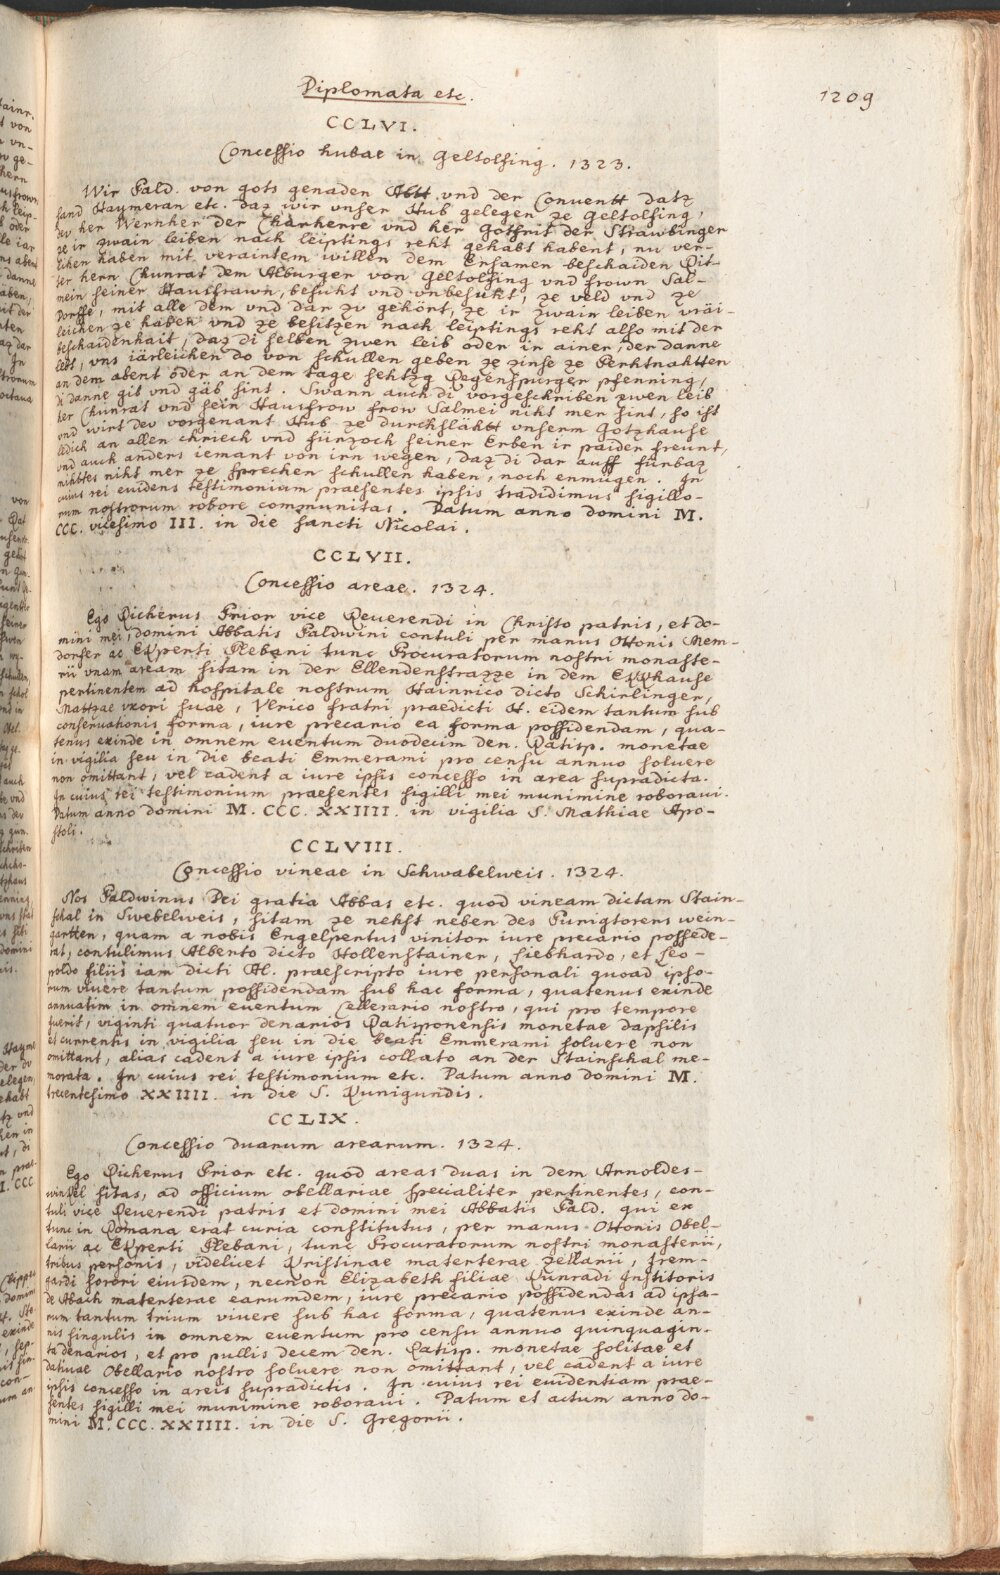 Diplomata etc.
1209
CCLVI.
Concessio hubae in Geltolfing. 1323.
Wir Pald. von gots genaden Abtt vnd der Conventt datz
sand Haymeran etc. daz wir vnser Hub gelegen ze Geltolfing,
dev her Wernher der Charherre vnd her Gotfrit der Strawbinger
ze ir zwain leiben nach leiptings reht gehabt habent, nu ver-
lihen haben mit veraintem willen dem Ersamen beschaiden Rit-
ter hern Chunrat dem Alburger von Geltolfing vnd frown Sal-
mein seiner Hausfrawn, besuht vnd vnbesuht, ze veld vnd ze
Dorffe, mit alle dem vnd dar zv gehört, ze ir zwain leiben vräi-
leichen ze haben vnd ze besitzen nach leiptings reht also mit der
beschaidenhait, daz di selben zwen leib oder in ainer, der danne
lebt, vns iärleichen do von schullen geben ze zinse ze Perhtnahtten
an dem abent oder an dem tage sehtzg Regenspurger pfenning,
di danne gib vnd gäb sint. Swann auch di vorgeschriben zwen leib
her Chunrat vnd sein Hausfrow frow Salmei niht mer sint, so ist
vnd wirt dev vorgenant Hub ze durchslähtt vnserm Gotzhause
ledich an allen chriech vnd fürzoch seiner Erben ir paider freunt,
vnd auch anders iemant von irn wegen, daz di dar auff fürbaz
nihtes niht mer ze sprechen schullen haben, noch enmügen. In
cuius rei euidens testimonium praesentes ipsis tradidimus sigillo-
rum nostrorum robore communitas. Datum anno domini M.
CCC. vicesimo III. in die sancti Nicolai.
CCLVII.
Concessio areae. 1324.
Ego Richerus Prior vice Reuerendi in Christo patris, et do-
mini mei, domini Abbatis Paldwini contuli per manus Ottonis Mem-
dorfer ac Ekperti Plebani tunc Procuratorum nostri monaste-
rii vnam aream sitam in der Ellendenstrazze in dem Ekkhause
pertinentem ad hospitale nostrum Hainrico dicto Schirlinger,
Mattzae vxori suae, Vlrico fratri praedicti H. eidem tantum sub
conseruationis forma, iure precario ea forma possidendam, qua-
tenus exinde in omnem euentum duodecim den. Ratisp. monetae
in vigilia seu in die beati Emmerami pro censu annuo soluere
non omittant, vel cadent a iure ipsis concesso in area supradicta.
In cuius rei testimonium praesentes sigilli mei munimine roboraui.
Datum anno domini M. CCC. XXIIII. in vigilia S. Mathiae Apo-
stoli.
CCLVIII.
Concessio vineae in Schwabelweis. 1324.
Nos Paldwinus Dei gratia Abbas etc. quod vineam dictam Stain-
schal in Swebelweis, sitam ze nehst neben des Purigtorens wein-
gartten, quam a nobis Engelpertus vinitor iure precario possede-
rat, contulimus Alberto dicto Hollenstainer, Liebhardo, et Leo-
poldo filiis iam dicti Al. praescripto iure personali quoad ipso-
rum viuere tantum possidendam sub hac forma, quatenus exinde
annuatim in omnem euentum Cellerario nostro, qui pro tempore
fuerit, viginti quatuor denarios Ratisponensis monetae dapsilis
et currentis in vigilia seu in die beati Emmerami soluere non
omittant, alias cadent a iure ipsis collato an der Stainschal me-
morata. In cuius rei testimonium etc. Datum anno domini M.
trecentesimo XXIIII. in die S. Kunigundis.
CCLIX.
Concessio duarum arearum. 1324.
Ego Richerus Prior etc. quod areas duas in dem Arnoldes-
winkel sitas, ad officium obellariae specialiter pertinentes, con-
tuli vice Reuerendi patris et domini mei Abbatis Pald. qui ex
tunc in Romana erat curia constitutus, per manus Ottonis Obel-
larii ac Ekperti Plebani, tunc Procuratorum nostri monasterii,
tribus personis, videlicet Kristinae materterae Zellarii, Irem-
gardi sorori eiusdem, necnon Elizabeth filiae Kunradi Institoris
de Abach materterae earumdem, iure precario possidendas ad ipsa-
rum tantum trium viuere sub hac forma, quatenus exinde an-
nis singulis in omnem euentum pro censu annuo quinquagin-
ta denarios, et pro pullis decem den. Ratisp. monetae solitae et
datiuae Obellario nostro soluere non omittant, vel cadent a iure
ipsis concesso in areis supradictis. In cuius rei euidentiam prae-
sentes sigilli mei munimine roboraui. Datum et actum anno do-
mini M. CCC. XXIIII. in die S. Gregorii.